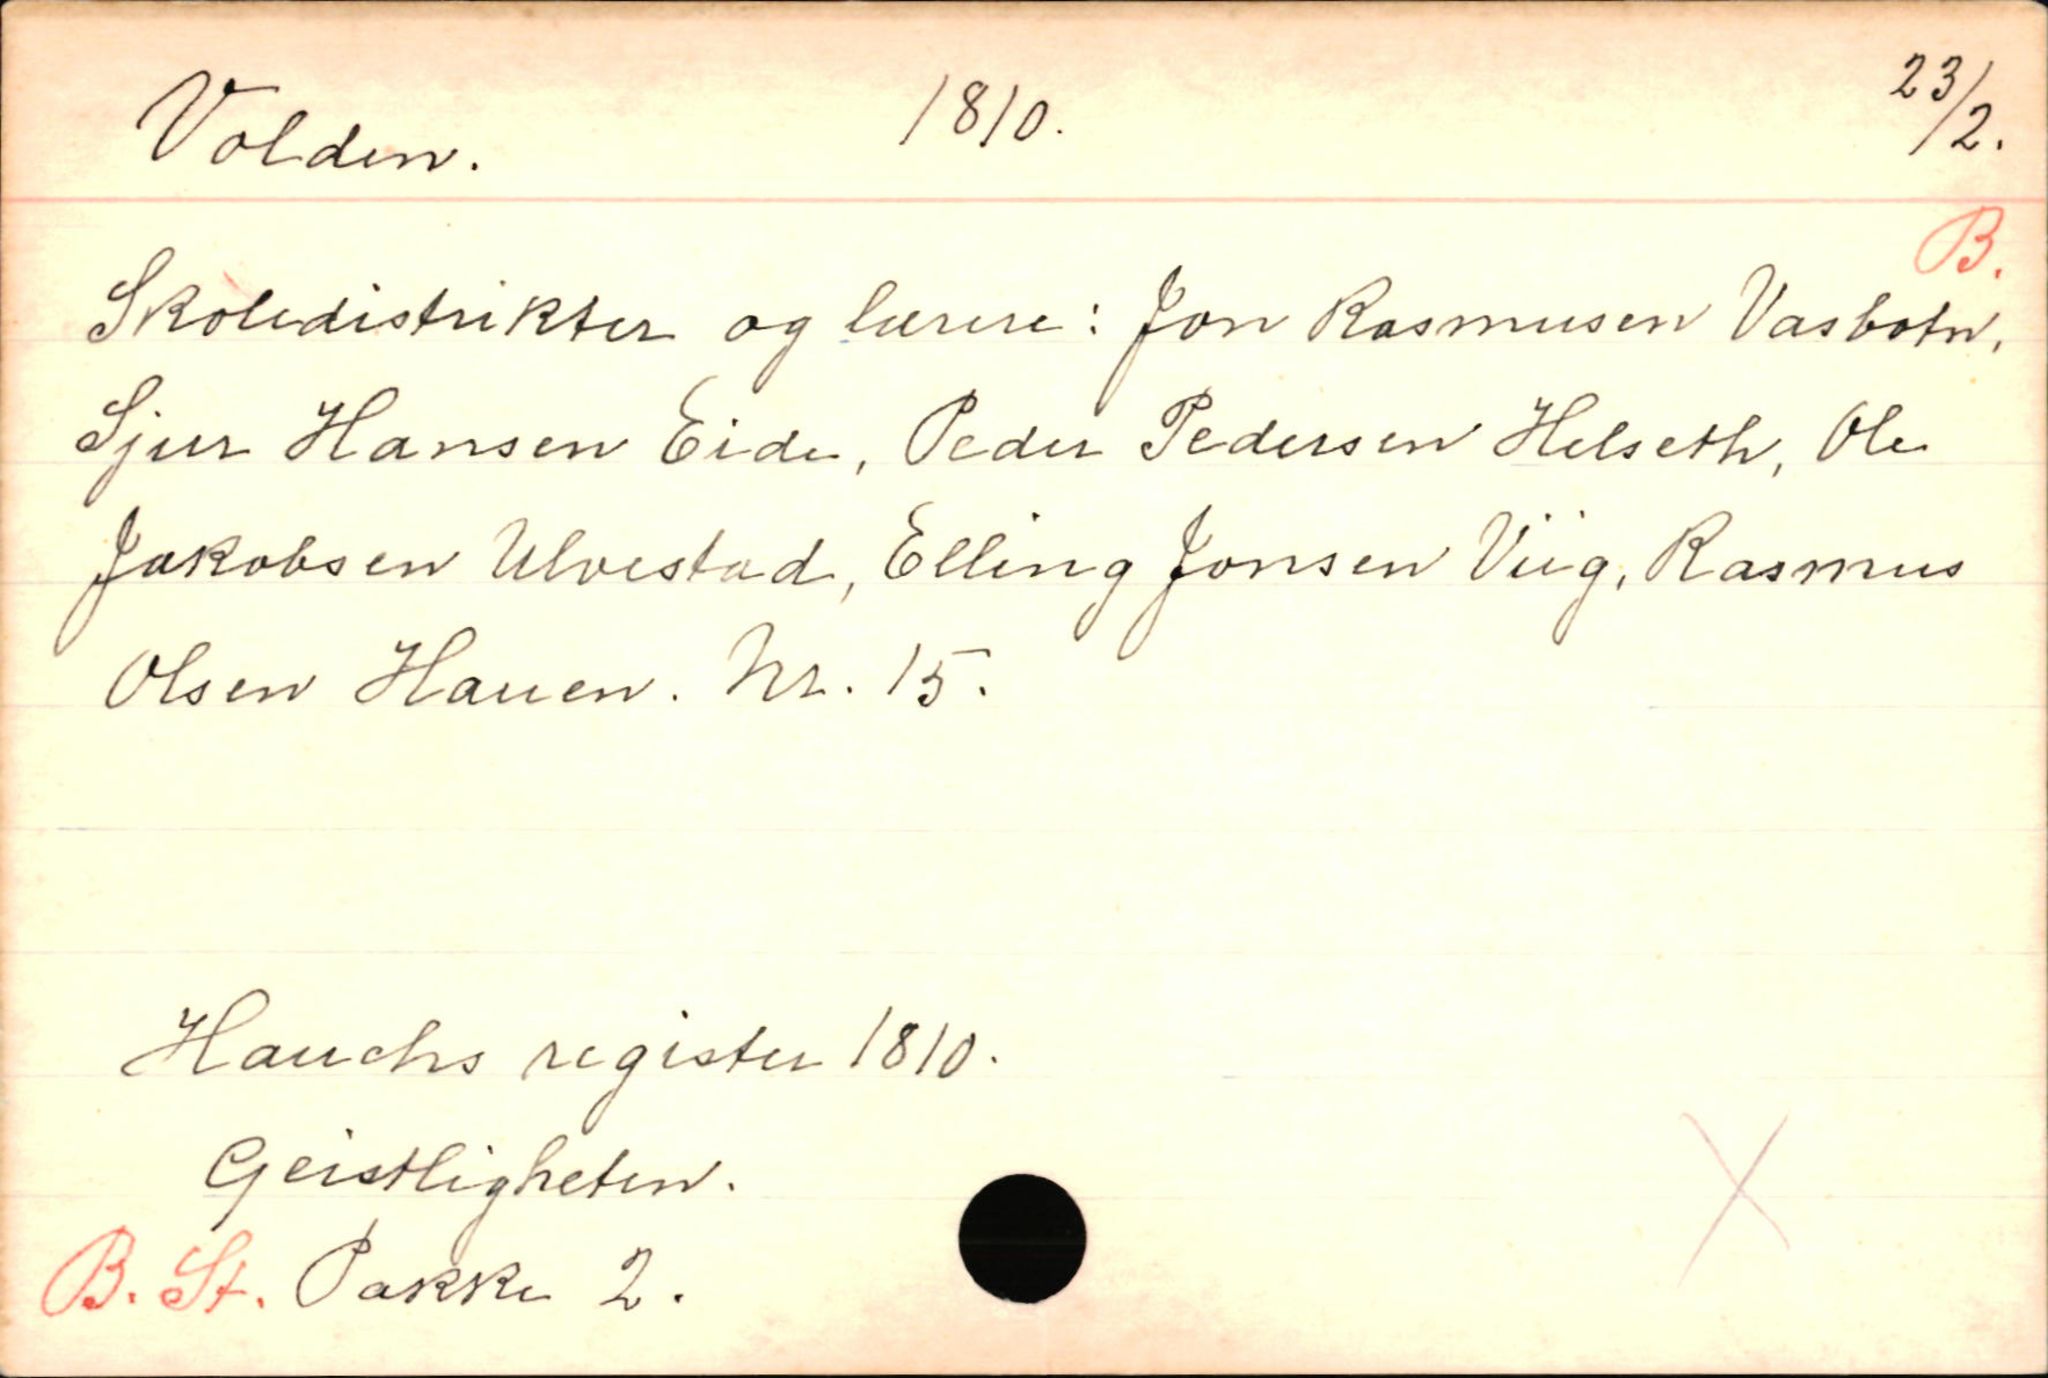 Volden. 1810. 23/2.
B.
Skoledistrikter og lærere: Jon Rasmusen Vasbotn,
Sjur Hansen Eide, Peder Pedersen Helseth, Ole
Jakobsen Ulvestad, Elling Jonsen Viig, Rasmus
Olsen Hauen. Nr. 15.
Hauchs register 1810.
Geistligheten.
B. St. Pakke 2.